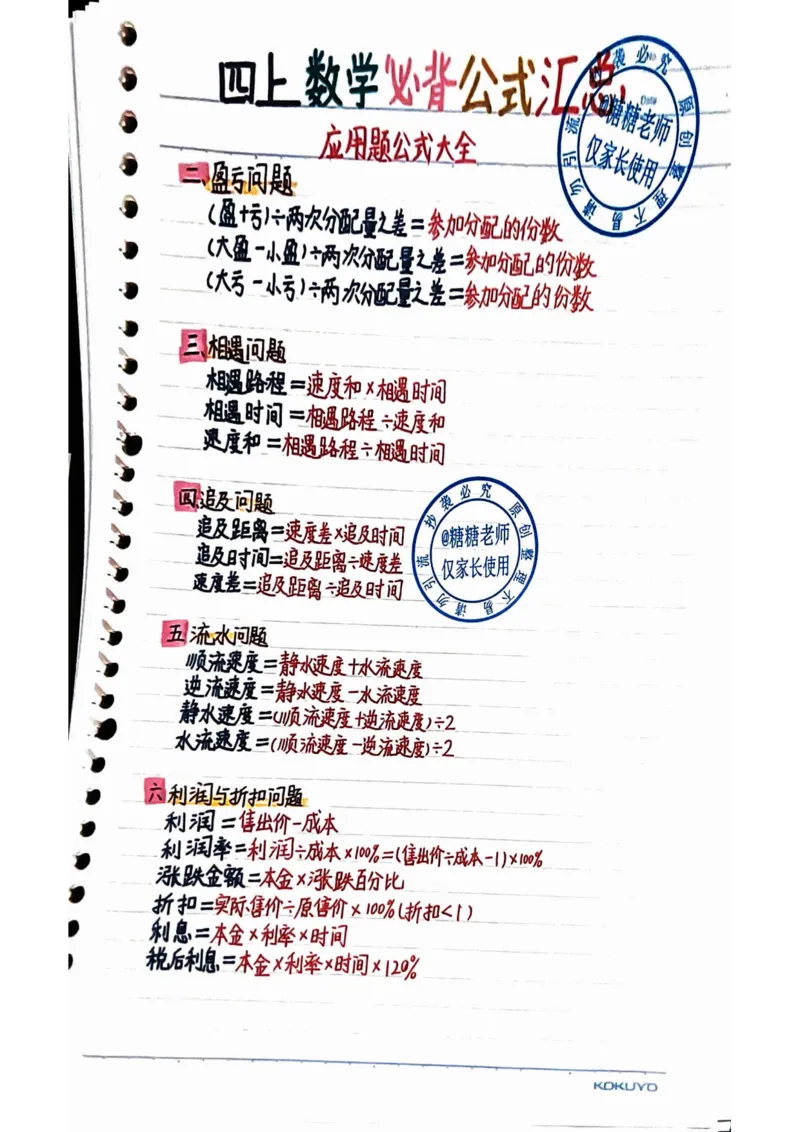 四上数学必背公式汇总
应用题公式大全
二、盈亏问题
(盈+亏)÷两次分配量之差=参加分配的份数
(大盈-小盈)÷两次分配量之差=参加分配的份数
(大亏-小亏)÷两次分配量之差=参加分配的份数
三、相遇问题
相遇路程=速度和×相遇时间
相遇时间=相遇路程÷速度和
速度和=相遇路程÷相遇时间
四、追及问题
追及距离=速度差×追及时间
追及时间=追及距离÷速度差
速度差=追及距离÷追及时间
五、流水问题
顺流速度=静水速度+水流速度
逆流速度=静水速度-水流速度
静水速度=(顺流速度+逆流速度)÷2
水流速度=(顺流速度-逆流速度)÷2
六、利润与折扣问题
利润=售出价-成本
利润率=利润÷成本×100%=(售出价÷成本-1)×100%
涨跌金额=本金×涨跌百分比
折扣=实际售价÷原售价×100%(折扣<1)
利息=本金×利率×时间
税后利息=本金×利率×时间×120%
KOKUYO
原创整理不易请勿引流抄袭必究
@糖糖老师
仅家长使用
原创整理不易请勿引流抄袭必究
@糖糖老师
仅家长使用